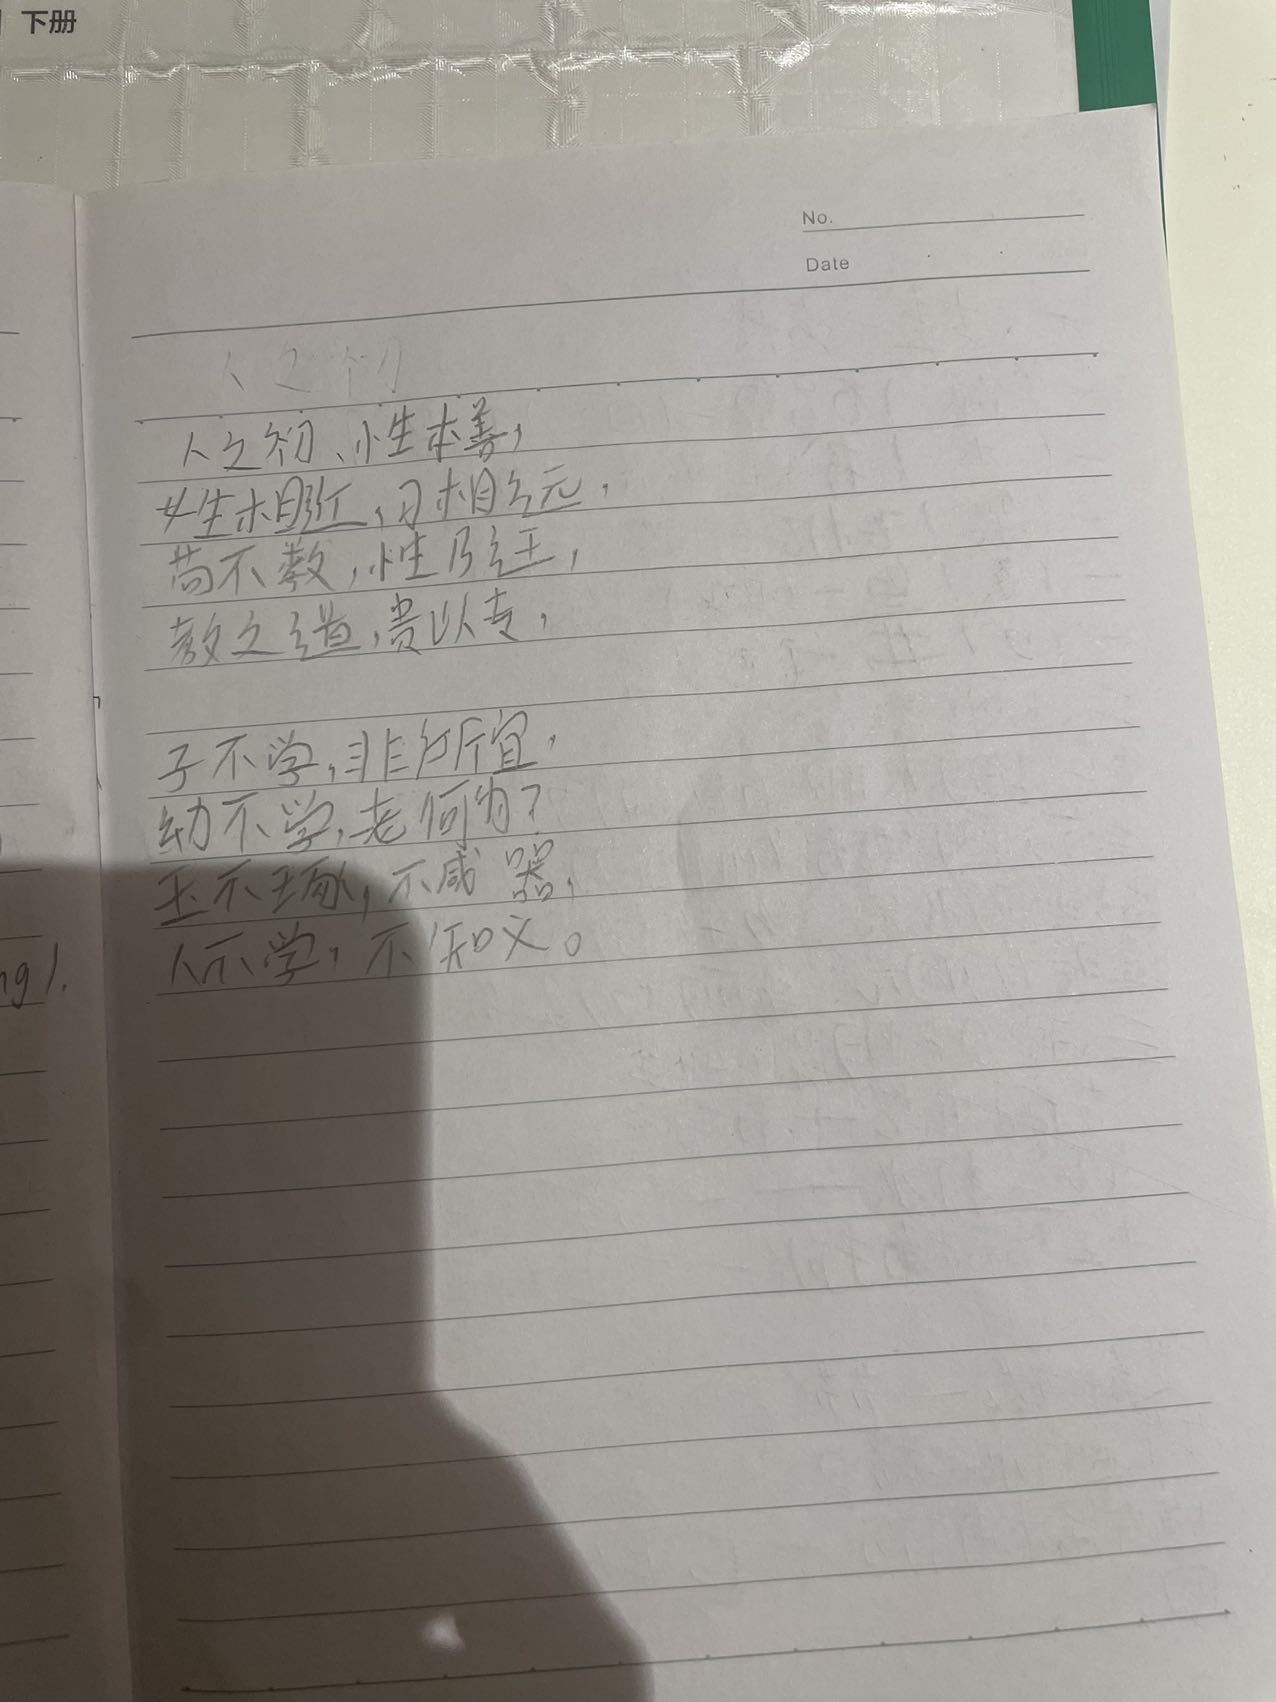 下册
No.
Date
人之初
人之初、性本善，
姓相近，习相远，
苟不教，性乃迁，
教之道，贵以专，
子不学，非所宜，
幼不学，老何为？
玉不琢，不成器，
人不学，不知义。
ng).